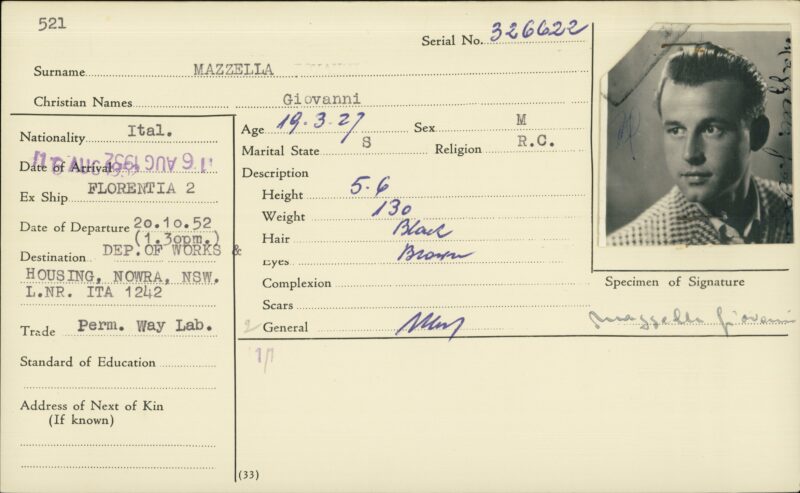 521
Serial No. 326622
Surname MAZZELLA
Christian Names Giovanni
Nationality Ital.
Date of Arrival 16 AUG 1952
Ex Ship FLORENTIA 2
Date of Departure 20.10.52
(1.30pm.)
Destination DEP. OF WORKS &
HOUSING, NOWRA, NSW.
L.NR. ITA 1242
Trade Perm. Way Lab.
Standard of Education
Address of Next of Kin
(If known)
Age 19.3.27 Sex M
Marital State S Religion R.C.
Description
Height 5.6
Weight 130
Hair Black
Eyes Brown
Complexion
Scars
General
1/1
(33)
Specimen of Signature
Mazzella Giovanni